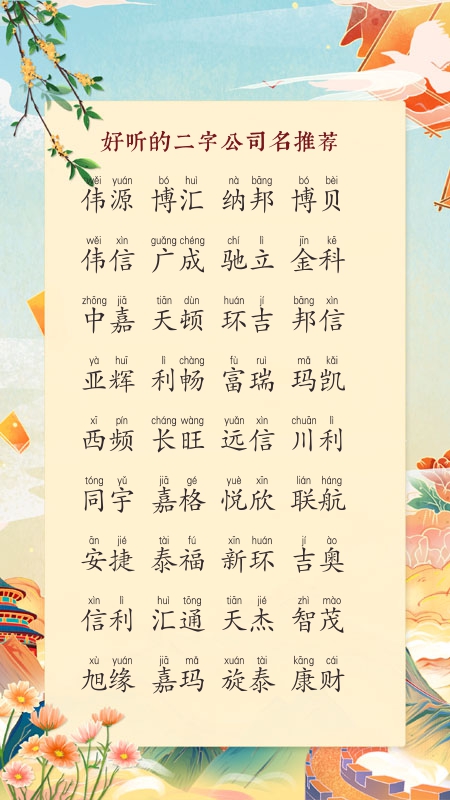 好听的二字公司名推荐
wěi yuán bó huì nà bāng bó bèi
伟源 博汇 纳邦 博贝
wěi xìn guǎng chéng chí lì jīn kē
伟信 广成 驰立 金科
zhōng jiā tiān dùn huán jí bāng xìn
中嘉 天顿 环吉 邦信
yà huī lì chàng fù ruì mǎ kǎi
亚辉 利畅 富瑞 玛凯
xī pín cháng wàng yuǎn xìn chuān lì
西频 长旺 远信 川利
tóng yǔ jiā gé yuè xīn lián háng
同宇 嘉格 悦欣 联航
ān jié tài fú xīn huán jí ào
安捷 泰福 新环 吉奥
xìn lì huì tōng tiān jié zhì mào
信利 汇通 天杰 智茂
xù yuán jiā mǎ xuán tài kāng cái
旭缘 嘉玛 旋泰 康财